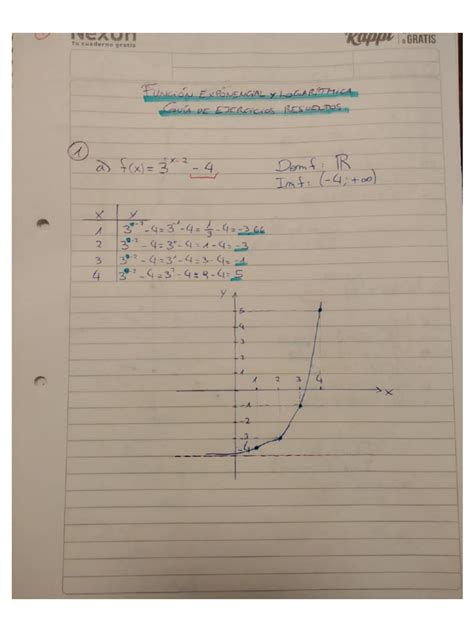 Nexun
Tu cuaderno gratis
Rappi & GRATIS
FUNCIÓN EXPONENCIAL Y LOGARÍTMICA
GUÍA DE EJERCICIOS RESUELTOS
1
a) f(x) = 3^x-2 - 4
Dom f: ℝ
Im f: (-4; +∞)
X Y
1 3^1-2 - 4 = 3^-1 - 4 = 1/3 - 4 = -3,66
2 3^2-2 - 4 = 3^0 - 4 = 1 - 4 = -3
3 3^3-2 - 4 = 3^1 - 4 = 3 - 4 = -1
4 3^4-2 - 4 = 3^2 - 4 = 9 - 4 = 5
Y
5
4
3
2
1
1 2 3 4
X
-1
-2
-3
-4